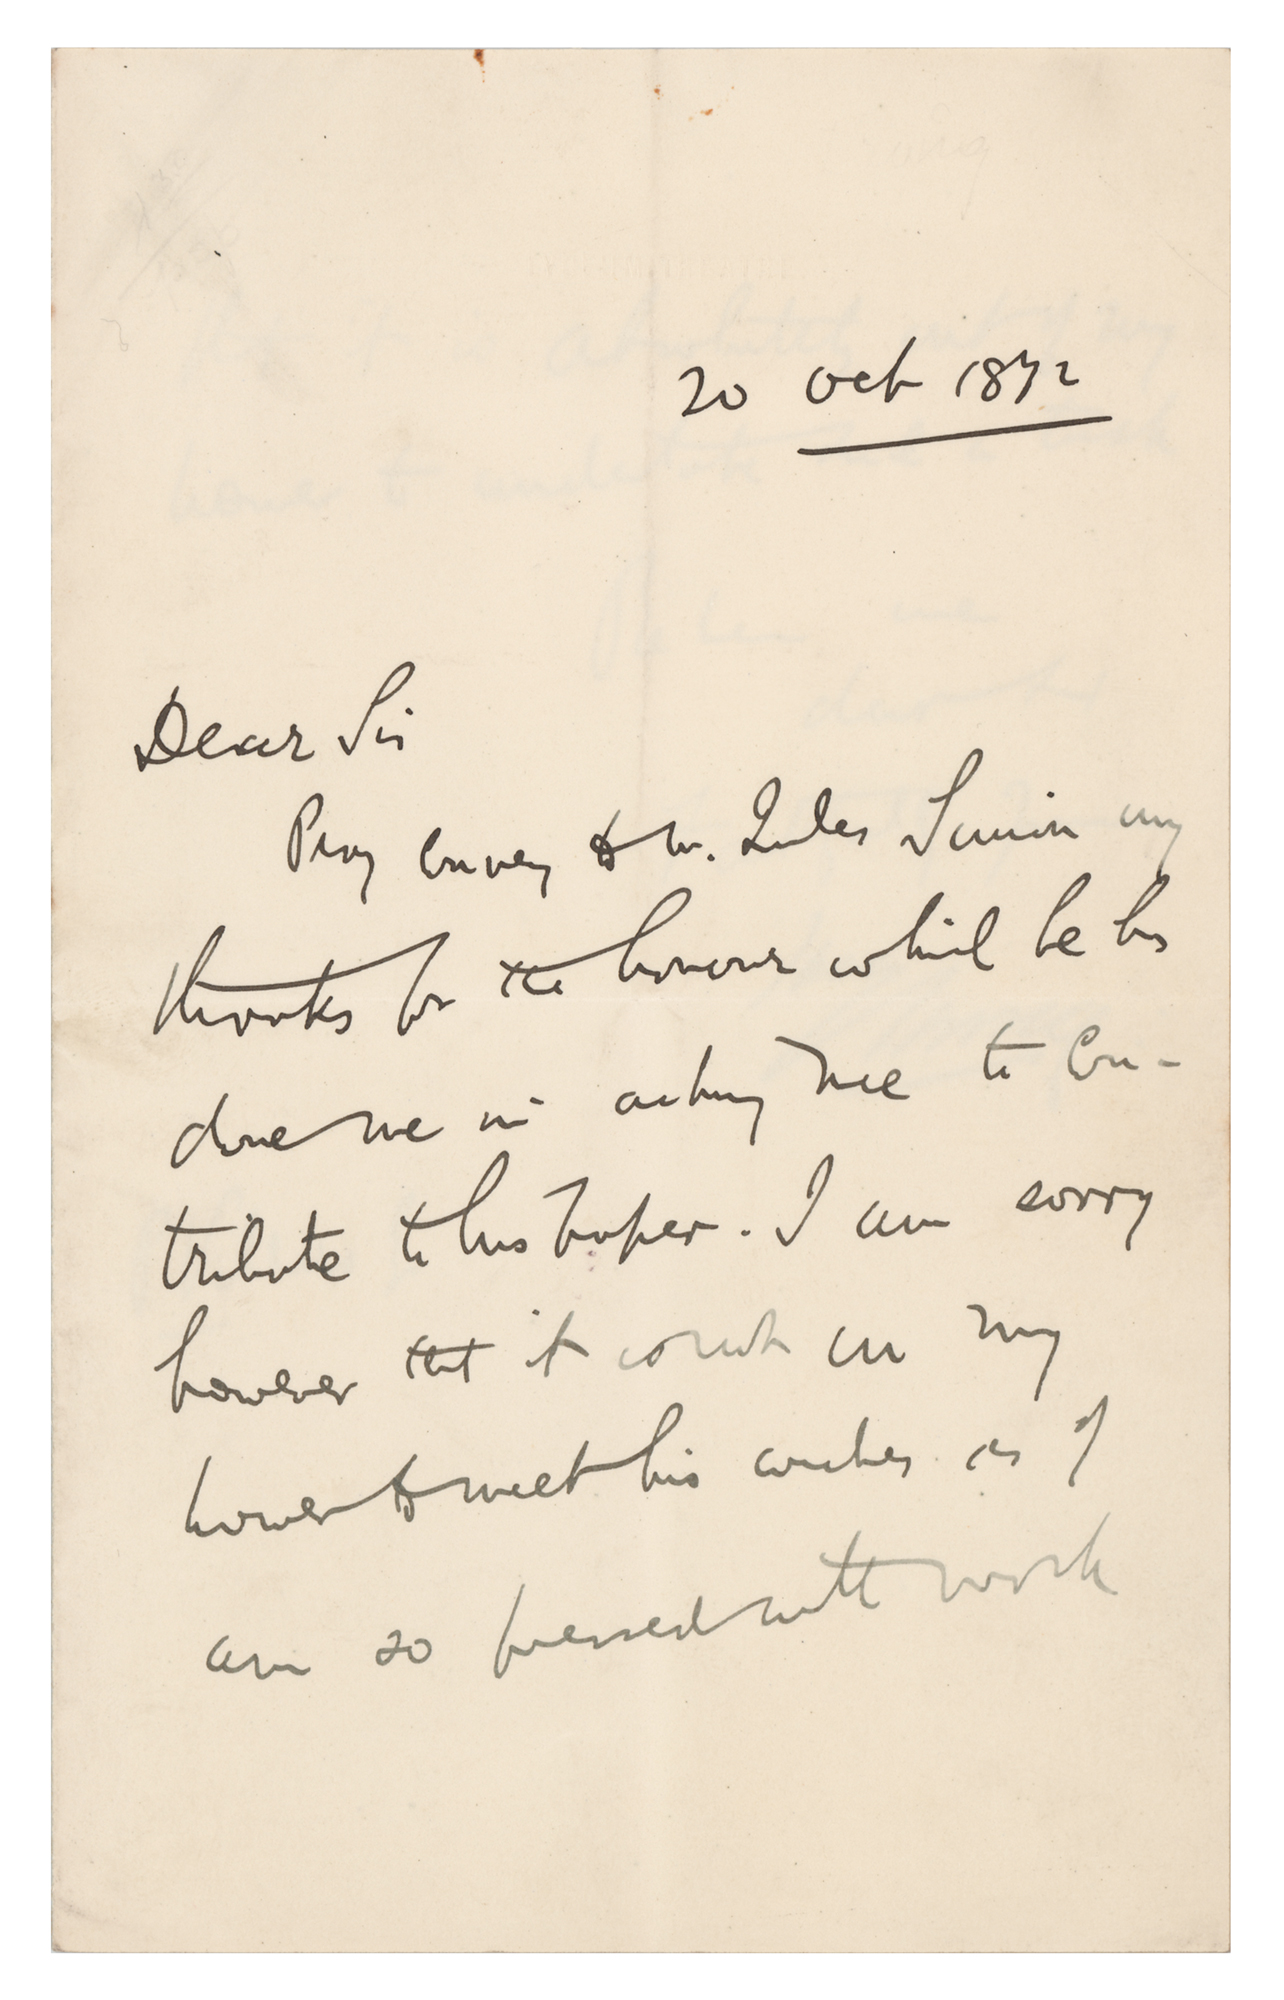 20 Oct 1892
Dear Sir
Pray convey to M. Jules Simon my
thanks for the honour which he has
done me in asking me to con-
tribute to his paper. I am sorry
however that it is not in my
power to meet his wishes as I
am so pressed with work